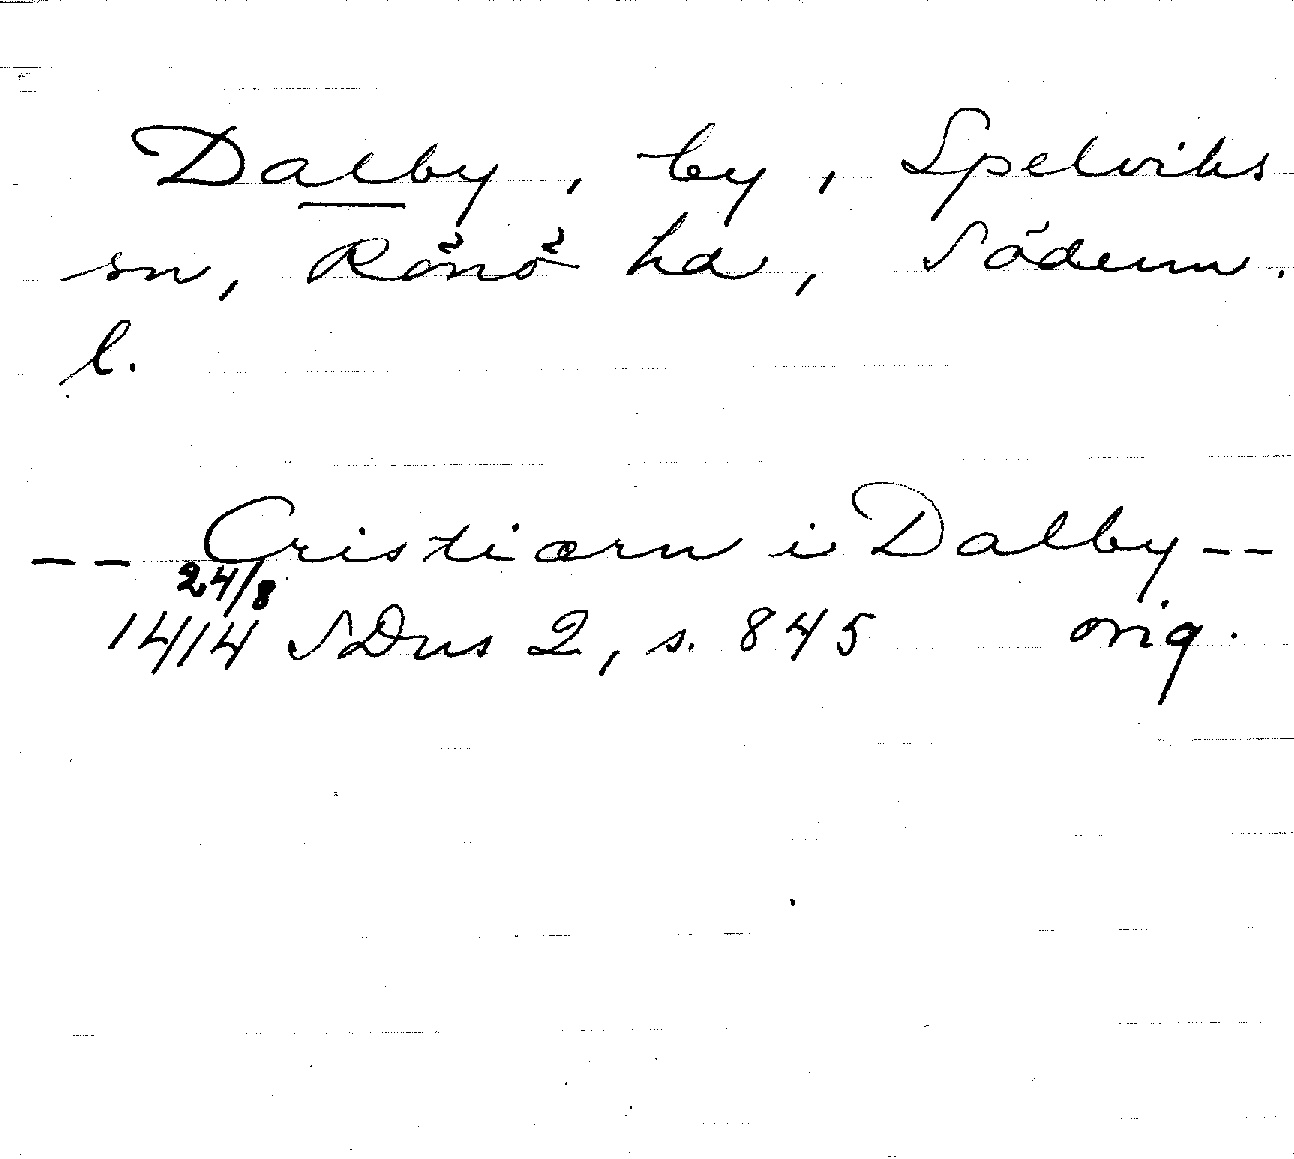 Dalby, by, Spelviks
sn, Rönö hd, Söderm.
l.
-- Cristiærn i Dalby --
24/8
1414 SDns 2, s. 845 orig.